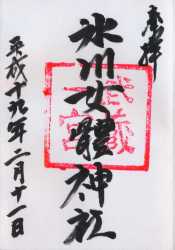 奉拝
氷川女體神社
武蔵
一宮
平成十九年二月十一日